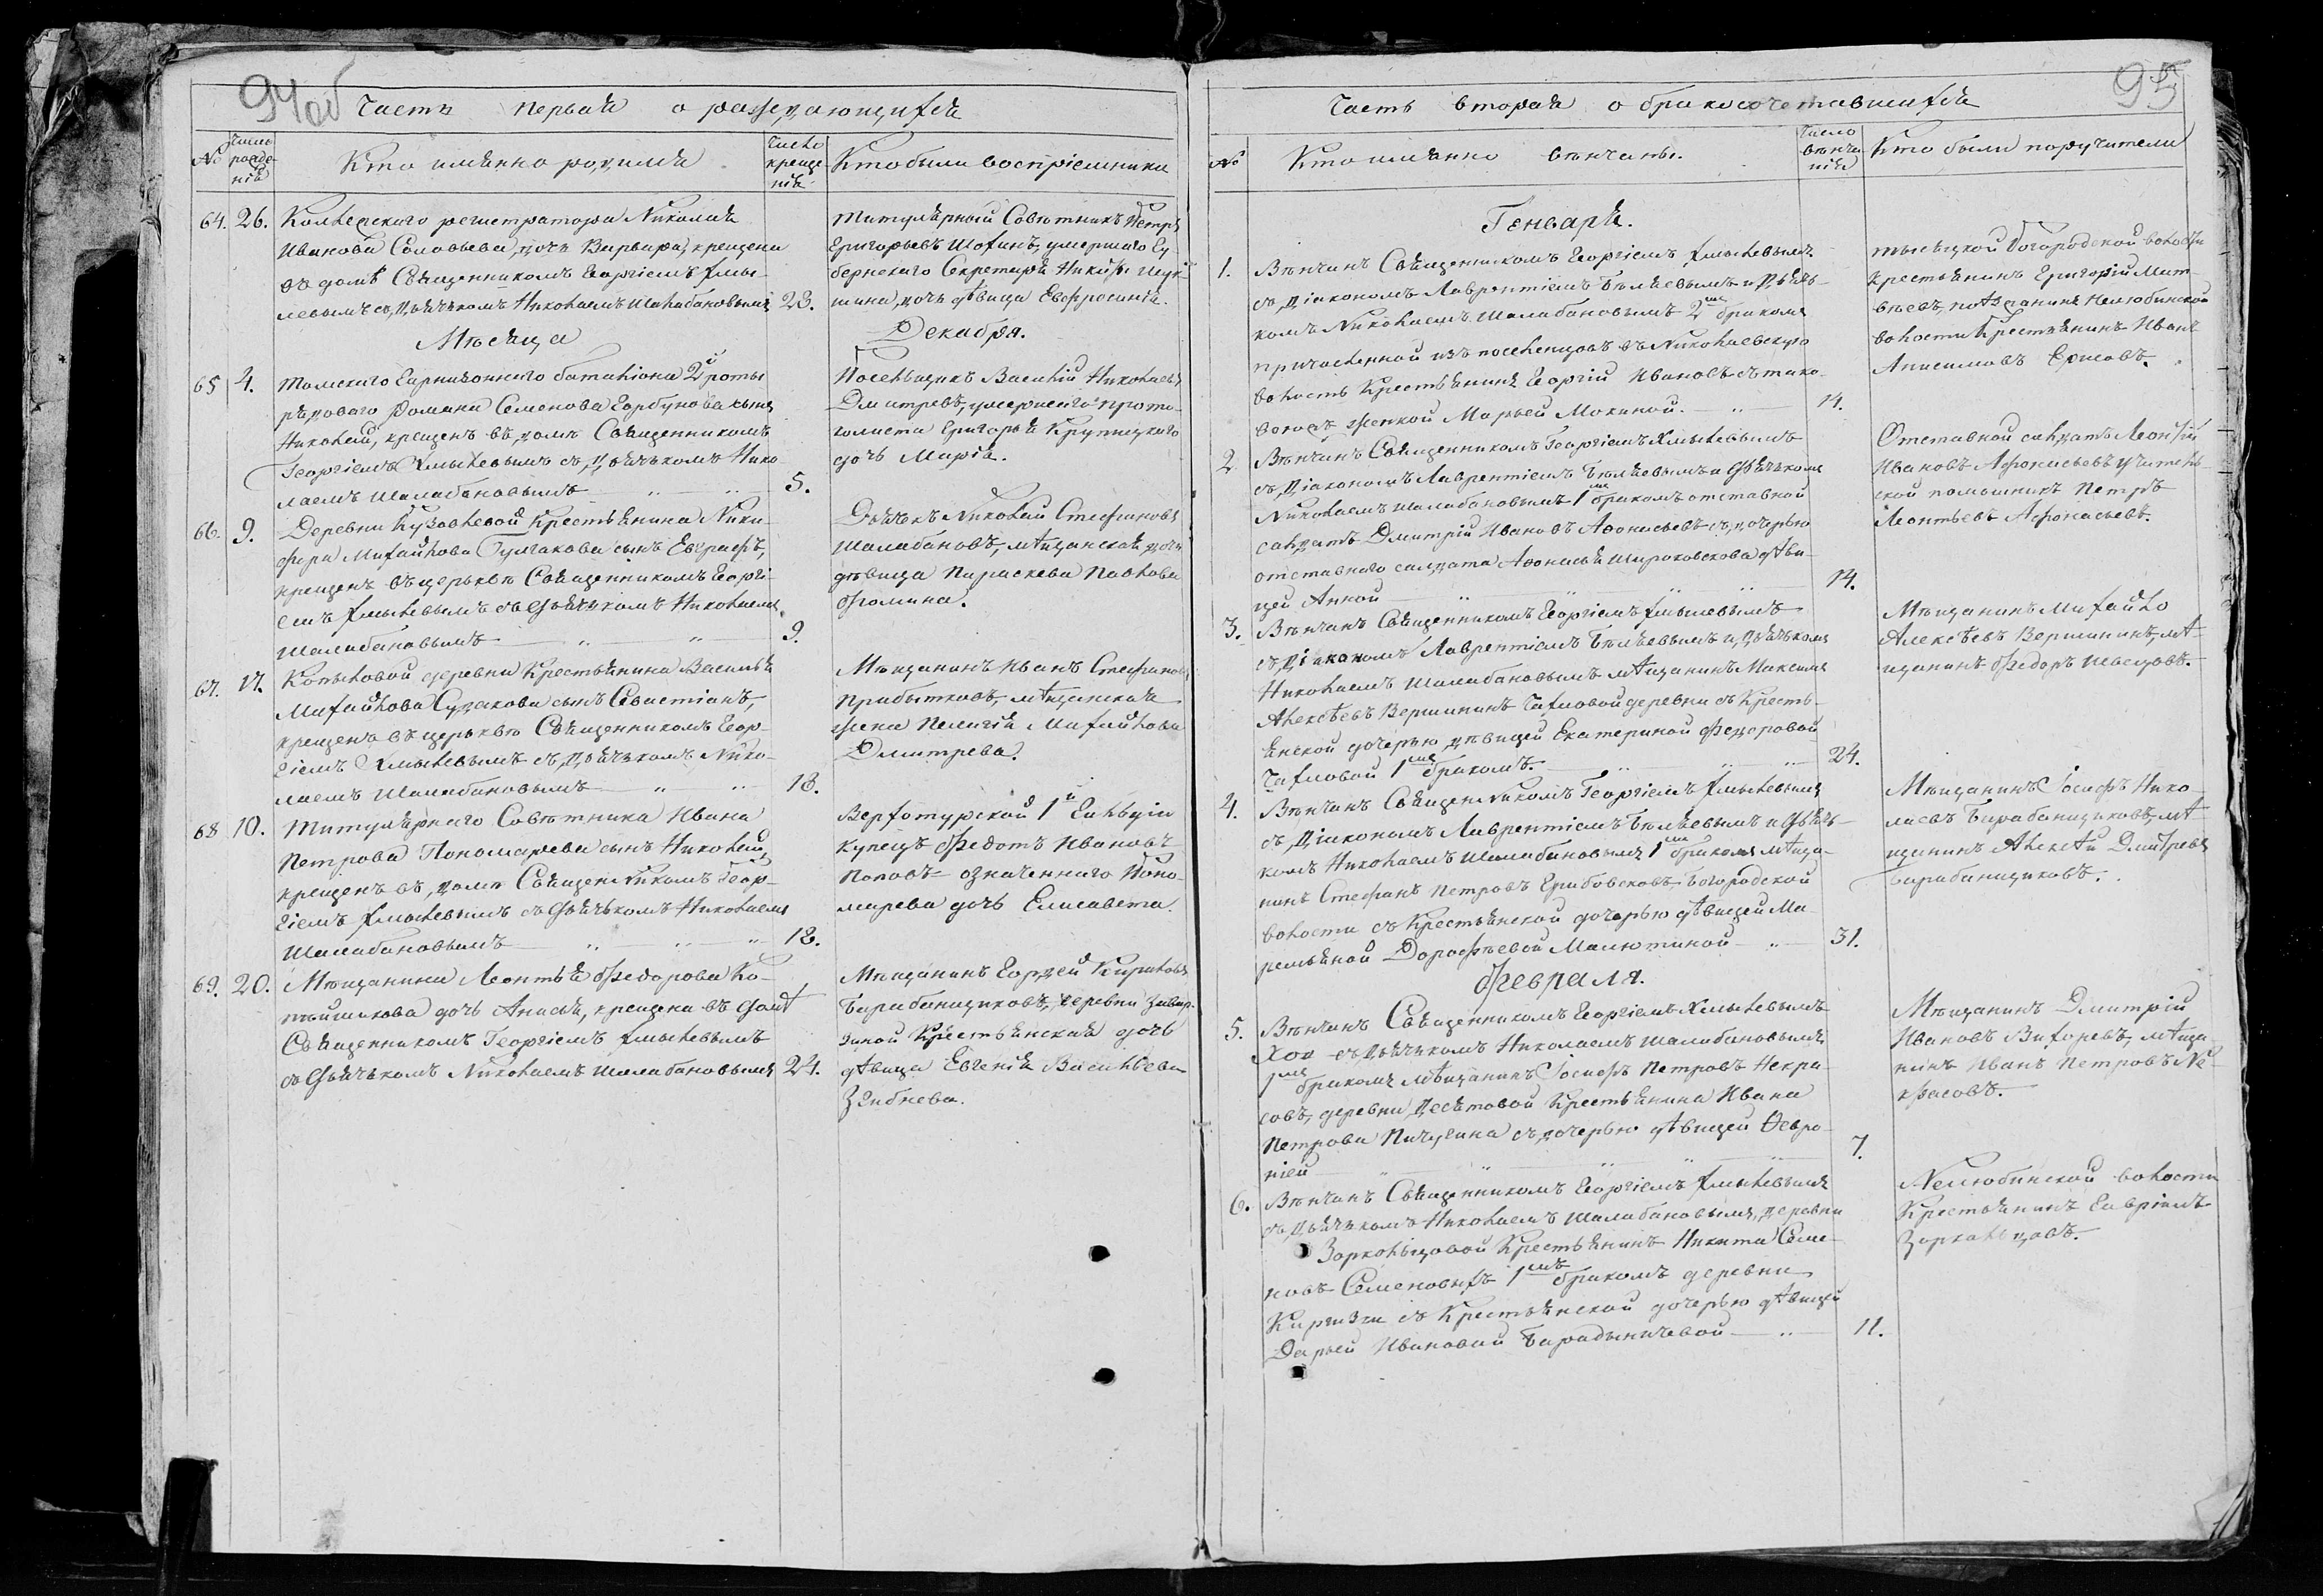 94 об
Часть первая о раждающихся
№
Число рожде-
нія
Кто именно родился
Число
креще-
нія
Кто были воспріемники
64. 26. Коллежского регистратора Николая
Иванова Соловьева дочь Варвара, крещена
въ домѣ Священникомъ Георгіемъ Хмы-
левымъ съ Дьячькомъ Николаемъ Шалабановымъ 23.
Титулярный Совѣтникъ Петръ
Григорьевъ умершаго Гу-
бернскаго Секретаря
дочь дѣвица Евфросинія.
Мѣсяца Декабря.
65 4. Томскаго Гарнизоннаго баталіона 2й роты
рядоваго Романа Семенова Горбунова сынъ
Николай, крещенъ въ домѣ Священникомъ
Георгіемъ Хмылевымъ съ Дьячькомъ Нико-
лаемъ Шалабановымъ 5.
Посельщикъ Василій Николаевъ
Дмитревъ, умершаго прото-
колиста Григорья Крупицкаго
дочь Марія.
66. 9. Деревни Кузовлевой Крестьянина Ники-
фора Михайлова сынъ Евграфъ,
крещенъ въ церьквѣ Священникомъ Георгі-
емъ Хмылевымъ съ Дьячькомъ Николаемъ
Шалабановымъ 9.
Дьячекъ Николай Стефановъ
Шалабановъ, мѣщанская дочь
дѣвица Параскева Павлова
Фомина.
67. 17. Копыловой деревни Крестьянина Василья
Михайлова Судакова сынъ Севастіанъ,
крещенъ въ церьквѣ Священникомъ Геор-
гіемъ Хмылевымъ съ Дьячькомъ Нико-
лаемъ Шалабановымъ 18.
Мѣщанинъ Иванъ Стефановъ
Прибытковъ, мѣщанская
жена Пелагія Михайлова
Дмитрева.
68 10. Титулярнаго Совѣтника Ивана
Петрова Пономарева сынъ Николай,
крещенъ въ домѣ Священникомъ Геор-
гіемъ Хмылевымъ съ Дьячькомъ Николаемъ
Шалабановымъ 18.
Верхотурской 1й Гильдіи
купецъ Федотъ Ивановъ
Поповъ означеннаго Поно-
марева дочь Елисавета.
69. 20. Мѣщанина Леонтья Федорова Ко-
дочь Анисья, крещена въ домѣ
Священникомъ Георгіемъ Хмылевымъ
съ Дьячькомъ Николаемъ Шалабановымъ 24.
Мѣщанинъ Гордей Кириловъ
Барабанщиковъ, деревни Завар-
зиной Крестьянская дочь
дѣвица Евгенія Васильева
Згибнева.
95
Часть вторая о бракосочетавшихся
№
Кто именно вѣнчаны.
Число
вѣнча-
нія
Кто были поручители
Генваря.
1. Вѣнчанъ Священникомъ Георгіемъ Хмылевымъ
съ Діакономъ Лаврентіемъ Бѣляевымъ и Дьячь-
комъ Николаемъ Шалабановымъ 2мъ бракомъ
причисленной изъ поселенцовъ въ Николаевскую
волость Крестьянинъ Георгій Ивановъ съ тако-
вогожъ женкой Марьей Мокиной. 14.
Богородской волости
Крестьянинъ Григорій Мат-
вѣевъ, Нелюбинской
волости Крестьянинъ Иванъ
Анисимовъ Борисовъ.
2 Вѣнчанъ Священникомъ Георгіемъ Хмылевымъ
съ Діакономъ Лаврентіемъ Бѣляевымъ и Дьячькомъ
Николаемъ Шалабановымъ 1мъ бракомъ отставной
салдатъ Дмитрій Ивановъ Афонасьевъ съ дочерью
отставнаго салдата Афонасья Широковскова дѣви-
цей Анной 14.
Отставной салдатъ Леонтій
Ивановъ Афонасьевъ учитель-
ской помошникъ Петръ
Леонтьевъ Афонасьевъ.
3. Вѣнчанъ Священникомъ Георгіемъ Хмылевымъ
съ Діакономъ Лаврентіемъ Бѣляевымъ и Дьячькомъ
Николаемъ Шалабановымъ мѣщанинъ Максимъ
Алексѣевъ Вершининъ Чахловой деревни съ Кресть-
янской дочерью дѣвицей Екатериной Федоровой
Чахловой 1мъ бракомъ. 24.
Мѣщанинъ Михайло
Алексѣевъ Вершининъ, мѣ-
щанинъ Федоръ Швецовъ.
4. Вѣнчанъ Священникомъ Георгіемъ Хмылевымъ
съ Діакономъ Лаврентіемъ Бѣляевымъ и Дьячь-
комъ Николаемъ Шалабановымъ 1мъ бракомъ мѣща-
нинъ Стефанъ Петровъ Грибовсковъ, Богородской
волости съ Крестьянской дочерью дѣвицей Ма-
ремьяной Дорофѣевой Малютиной 31.
Мѣщанинъ Іосифъ Нико-
лаевъ Барабанщиковъ, мѣ-
щанинъ Алексѣй Дмитревъ
Барабанщиковъ.
Февраля.
5. Вѣнчанъ Священникомъ Георгіемъ Хмылевымъ
съ Дьячькомъ Николаемъ Шалабановымъ
1мъ бракомъ мѣщанинъ Іосифъ Петровъ Некра-
совъ, деревни Десятовой Крестьянина Ивана
Петрова Пичугина съ дочерью дѣвицей Февро-
ніей 7.
Мѣщанинъ Дмитрій
Ивановъ Вихоревъ, мѣща-
нинъ Иванъ Петровъ Не-
красовъ.
6. Вѣнчанъ Священникомъ Георгіемъ Хмылевымъ
съ Дьячькомъ Николаемъ Шалабановымъ, деревни
Зоркольцовой Крестьянинъ Никита Семе-
новъ Семеновыхъ 1мъ бракомъ деревни
Киргизки съ Крестьянской дочерью дѣвицей
Дарьей Ивановой 11.
Нелюбинской волости
Крестьянинъ Гавріилъ
Зоркальцовъ.